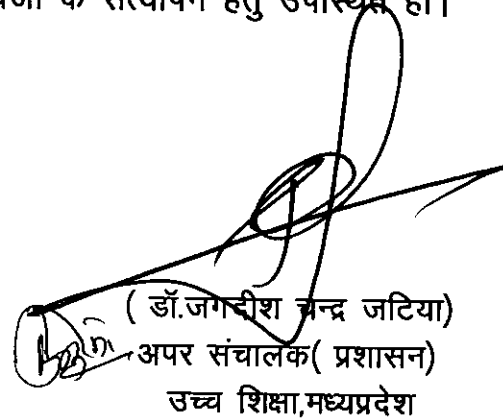 के सत्यापन हेतु उपस्थित हों।
( डॉ.जगदीश चन्द्र जटिया)
अपर संचालक( प्रशासन)
उच्च शिक्षा,मध्यप्रदेश